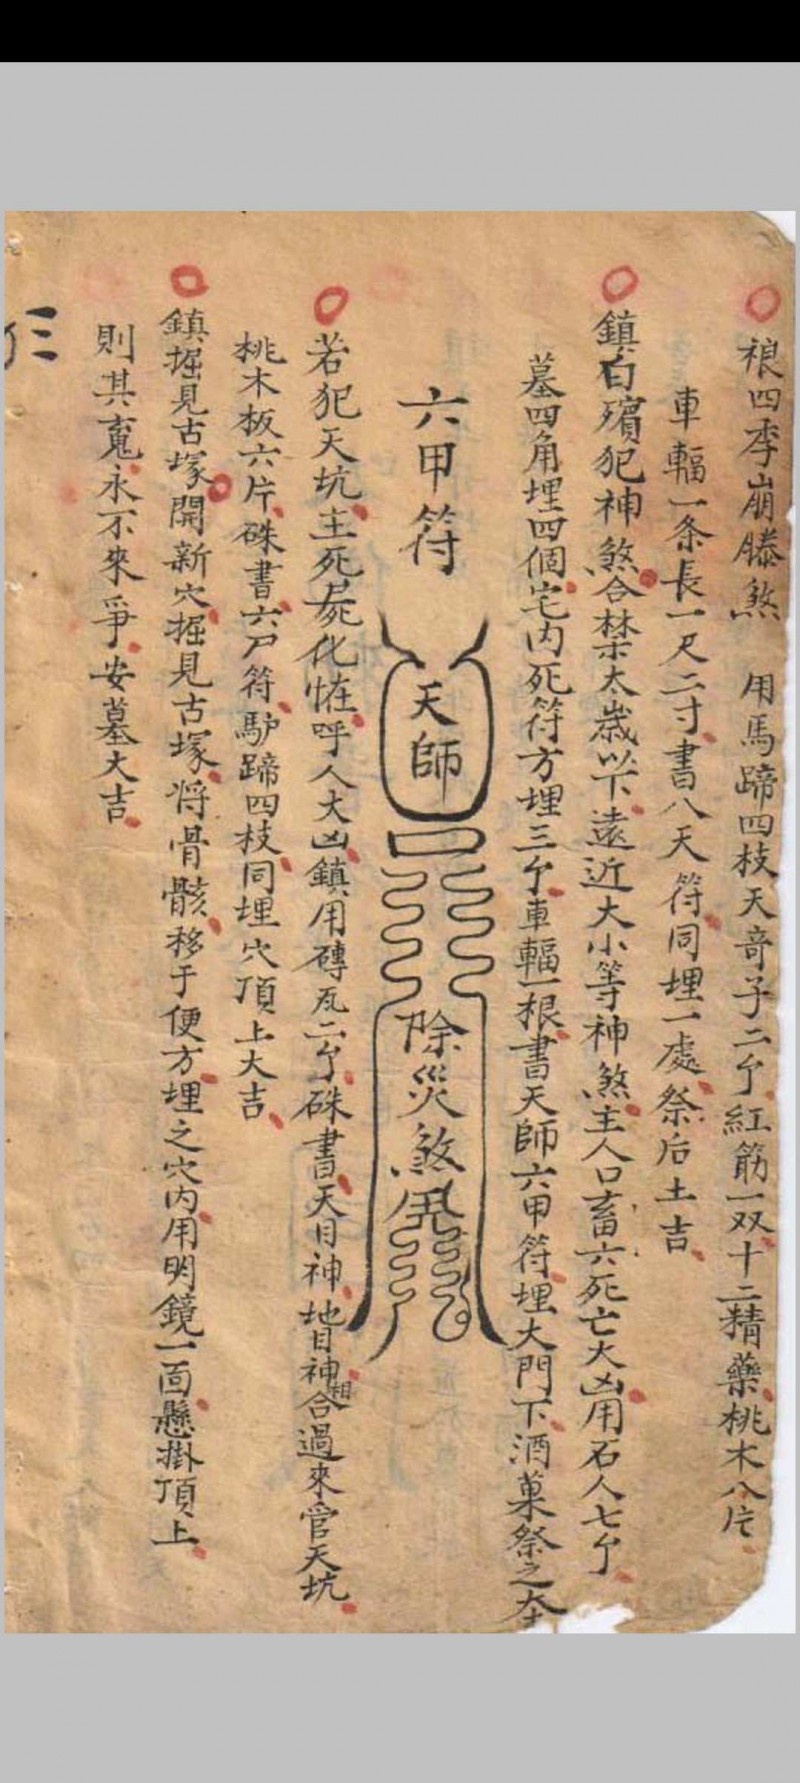 四季崩滕煞　用馬蹄四枝天奇子二个紅筋一双十二精藥桃木八片
車輻一条長一尺二寸書八天符同埋一處祭后土吉
鎮白殯犯神煞合禁太歲以下遠近大小等神煞主人口畜六死亡大凶用石人七个
墓四角埋四個宅内死符方埋三个車輻一根書天師六甲符埋大門下酒菓祭之
六甲符
天師
除災煞鬼
若犯天坑主死屍化恠呼人大凶鎮用磚瓦二个硃書天目神地目神相合過來管天坑
桃木板六片硃書六尸符馿蹄四枝同埋穴頂上大吉
鎮掘見古塚開新穴掘見古塚将骨骸移于便方埋之穴内用明鏡一面懸掛頂上
則其䰟永不來爭安墓大吉